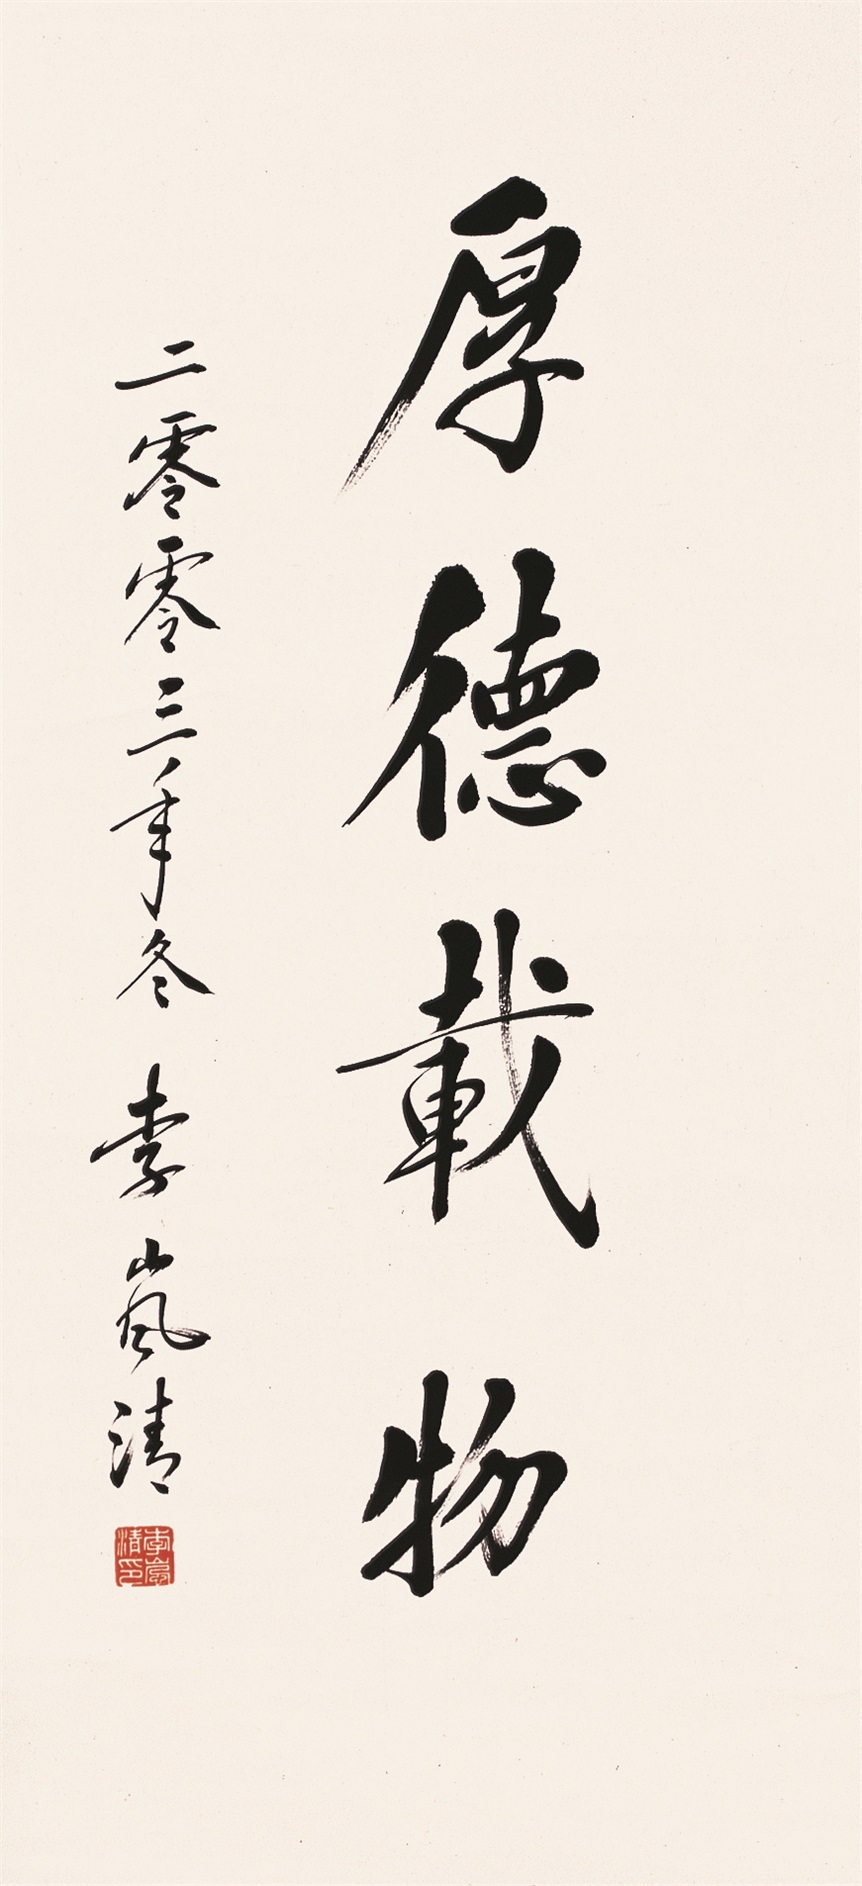 厚德載物
二零零三年冬 李嵐清
李嵐清印